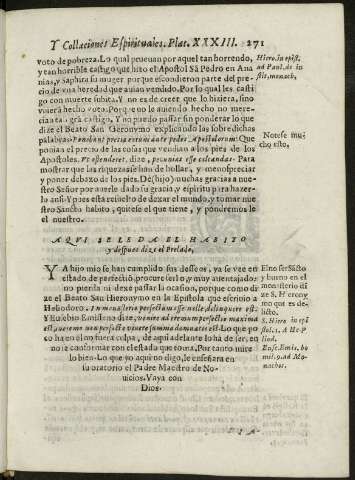 Y Collaciones Espirituales. Plat. XXXIII. 271
voto de pobreza. Lo qual prueuan por aquel tan horrendo,
y tan horrible castigo que hizo el Apostol Sã Pedro en Ana
nias, y Saphira su muger por que escondieron parte del pre-
cio de vna heredad que auian vendido. Por lo qual les casti
go con muerte subita. Y no es de creer que lo hiziera, sino
vuiera hecho voto. Porque no le auiendo hecho no mere-
cieran tal grã castigo. Y no puedo passar sin ponderar lo que
dize el Beato San Geronymo explicando las sobre dichas
palabras: Ponebant precia eorum ante pedes Apostolorum: Que
ponian el precio de las cosas que vendian a los pies de los
Apostoles. Vt ostenderet, dize, pecunias esse calcandas. Para
mostrar que las riquezas se han de hollar, y menospreciar
y poner debaxo de los pies. De (hijo) muchas gracias a nues-
tro Señor por auerle dado su gracia, y espiritu para hazer-
lo ansi. Y pues esta resuelto de dexar el mundo, y tomar nue
stro Sancto habito, quitese el que tiene, y pondremos le
el nuestro.
Hiero. in epist.
ad Paul. de in
stit. monach.
Notese mu
cho esto,
AQVI SE LE DA EL HABITO
y despues dize el Perlado,
YA hijo mio se han cumplido sus desseos, ya se vee en
estado de perfectiõ, procure serlo, y muy auentajado:
no pierda ni dexe passar la ocasion, porque como di-
ze el Beato San Hieronymo en la Epistola que escriuio a
Heliodoro. In monasterio perfectum esse nolle, delinquere est.
Y Eusebio Emisseno dize, Venire ad eremum perfectio maxima
est, non vero non perfecte viuere summa damnatio est. Lo que po
co ha en el no fuera culpa, de aqui adelante lo ha de ser, co
mo no se conformar con el estado que toma. Por tanto mire
lo bien. Lo que yo aqui no digo, le enseñara en
su oratorio el Padre Maestro de No-
uicios. Vaya con
Dios.
El no ser Sãcto
y bueno en el
monesterio di
ze S. Hierony
mo que es de-
linquir.
S. Hiero. in epi
stol. 1. A He-
liod.
Euse. Emis. ho
mil. 9. ad Mo-
nachos.